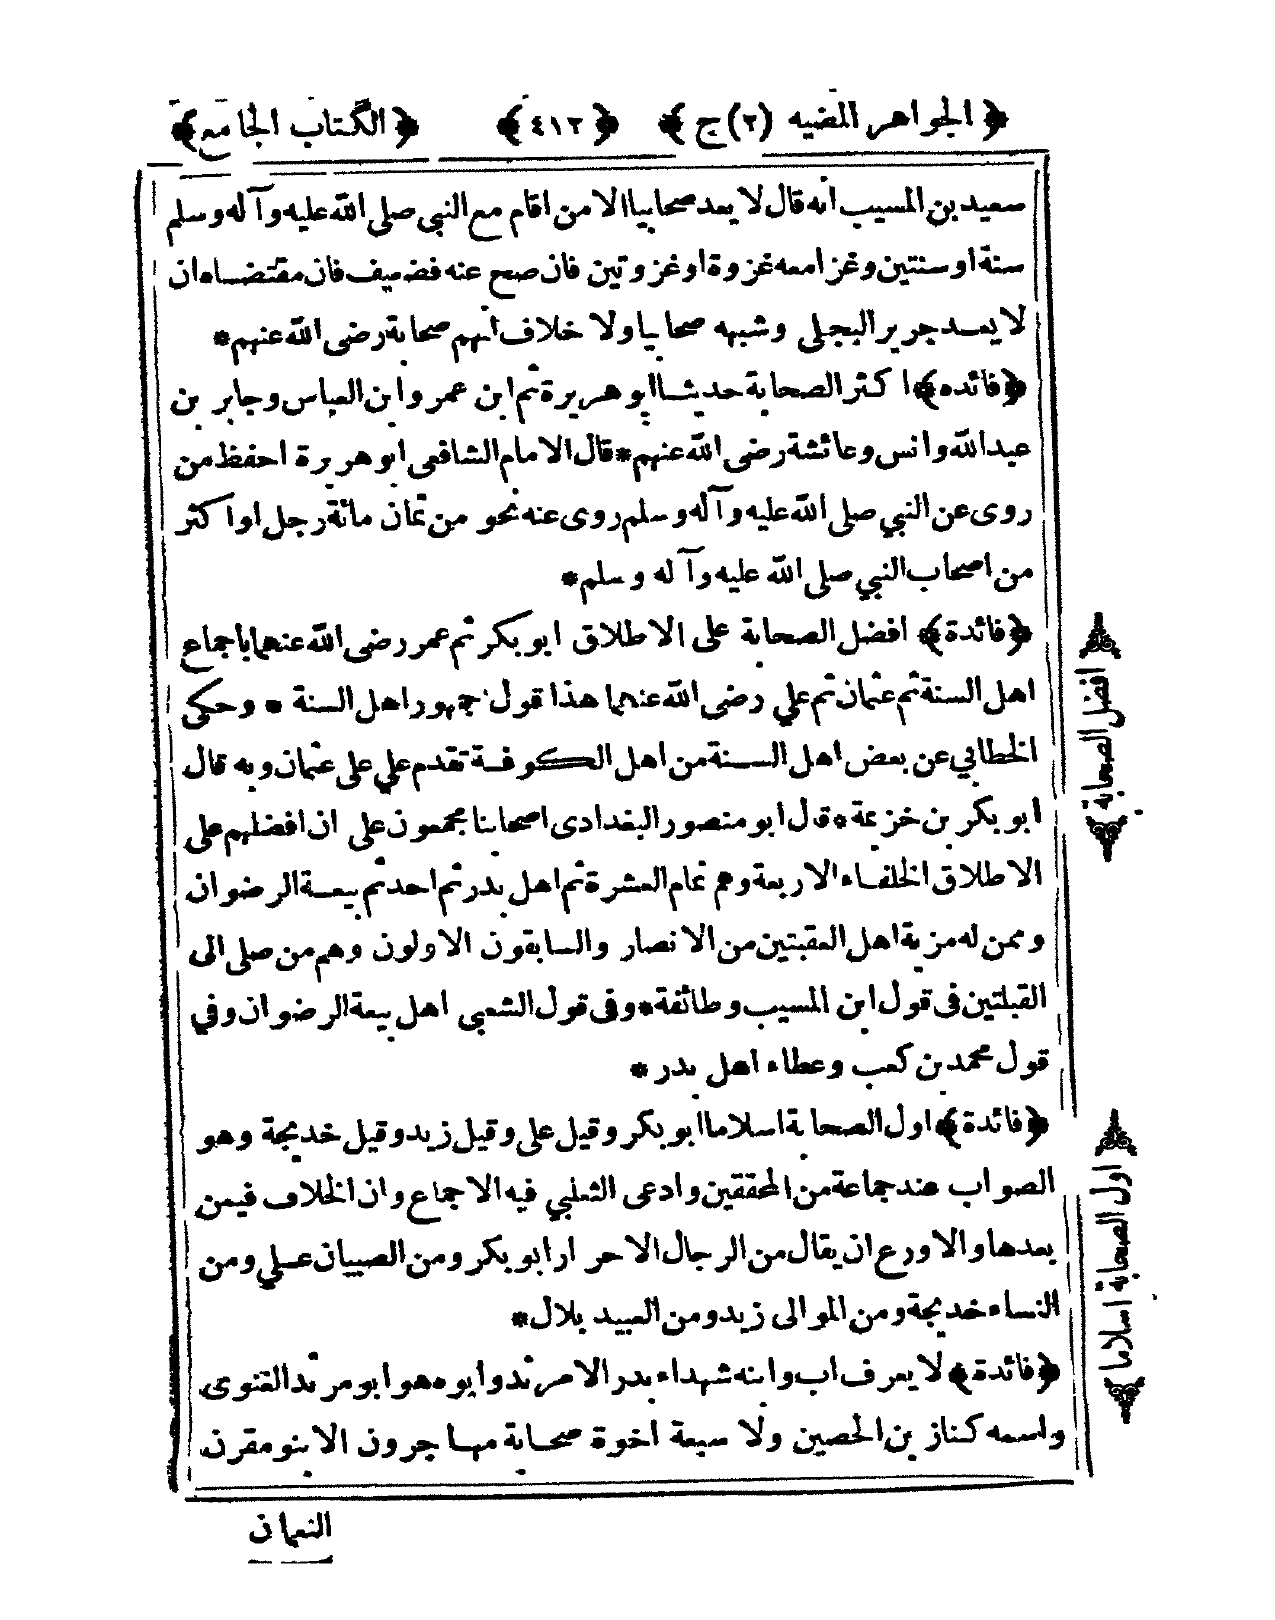 ﴿الجواهر المضيه (٢) ج﴾ ﴿٤١٢﴾ ﴿الكتاب الجامع﴾
سعيد بن المسيب انه قال لا يعد صحابيا الا من اقام مع النبي صلى الله عليه وآله وسلم
سنة او سنتين وغزا معه غزوة او غزوتين فان صح عنه فضعيف فان مقتضاه ان
لا يعد جرير البجلى وشبهه صحابيا ولا خلاف انهم صحابة رضى الله عنهم *
﴿فائده﴾ اكثر الصحابة حديثا ابو هريرة ثم ابن عمر وابن العباس وجابر بن
عبد الله وانس وعائشة رضى الله عنهم * قال الامام الشافعى ابو هريرة احفظ من
روى عن النبي صلى الله عليه وآله وسلم روى عنه نحو من ثمان مائة رجل او اكثر
من اصحاب النبي صلى الله عليه وآله وسلم *
﴿فائدة﴾ افضل الصحابة على الاطلاق ابو بكر ثم عمر رضى الله عنهما باجماع
اهل السنة ثم عثمان ثم علي رضى الله عنهما هذا قول جمهور اهل السنة * وحكى
الخطابي عن بعض اهل السنة من اهل الكوفة تقدم علي على عثمان وبه قال
ابو بكر بن خزيمة * قال ابو منصور البغدادى اصحابنا مجمعون على ان افضلهم على
الاطلاق الخلفاء الاربعة وهم تمام العشرة ثم اهل بدر ثم احد ثم بيعة الرضوان
وممن له مزية اهل العقبتين من الانصار والسابقون الاولون وهم من صلى الى
القبلتين فى قول ابن المسيب وطائفة * وفى قول الشعبى اهل بيعة الرضوان وفي
قول محمد بن كعب وعطاء اهل بدر *
﴿فائدة﴾ اول الصحابة اسلاما ابو بكر وقيل على وقيل زيد وقيل خديجة وهو
الصواب عند جماعة من المحققين وادعى الثعلبي فيه الاجماع وان الخلاف فيمن
بعدها والاورع ان يقال من الرجال الاحرار ابو بكر ومن الصبيان علي ومن
النساء خديجة ومن الموالى زيد ومن العبيد بلال *
﴿فائدة﴾ لا يعرف اب وابنه شهداء بدر الا مرثد وابوه هو ابو مرثد الغنوى
واسمه كناز بن الحصين ولا سبعة اخوة صحابة مهاجرون الا بنو مقرن
النعمان
﴿افضل الصحابة﴾
﴿اول الصحابة اسلاما﴾